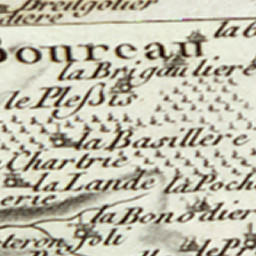 Breilgolier
diere
Boureau
la Brigauliere
le Pleßis
la Basillere
Chartrie
la Lande la Poch
erie
la Bonodier
Joli
le Pr